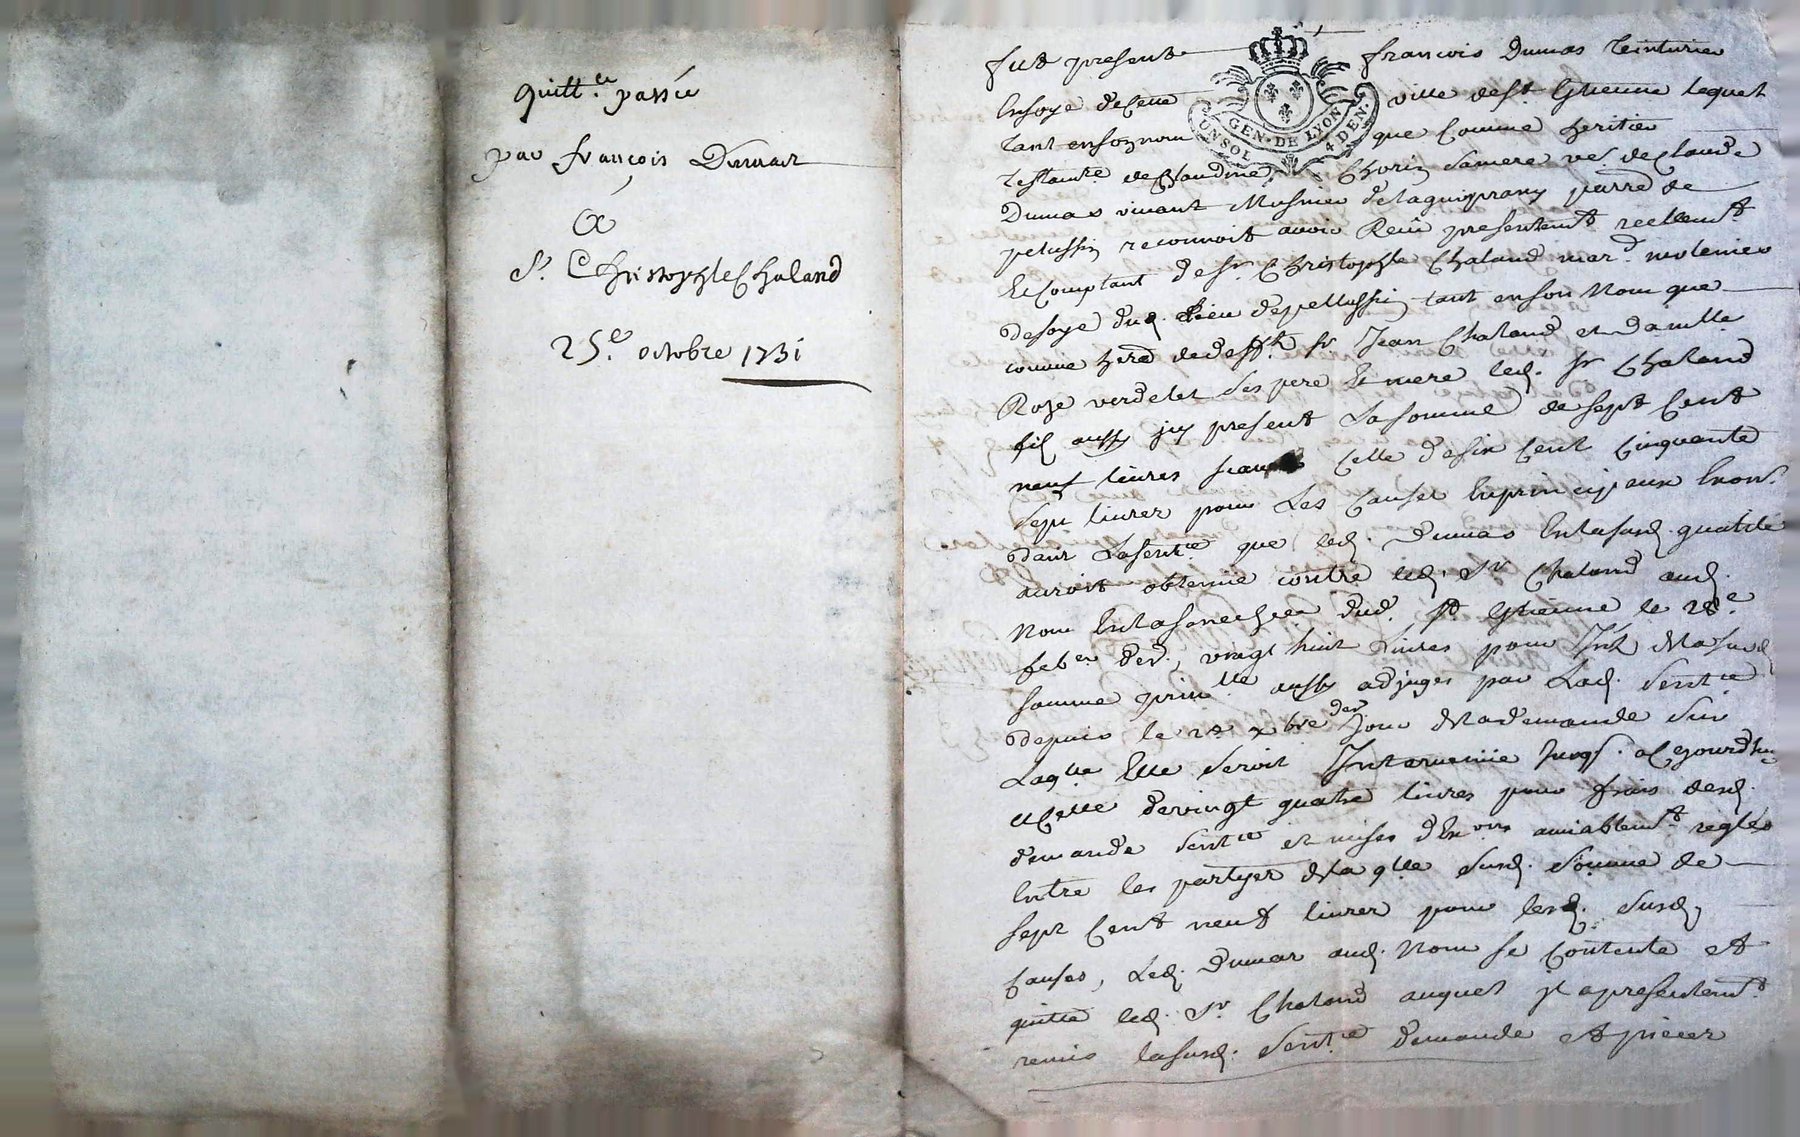 quitt.ce passée
par françois Dumas
a
Sr. Christophle Chaland
25.e octobre 1731
GEN·DE LYON
UN·SOL 4·DEN.
fut present françois Dumas teinturier
en soye de cette ville de St. Etienne lequel
tant en son nom que comme heritier
testam.re de Claudine Thoris sa mere ve. de Claude
Dumas vivant Musnier de parr.e de
pelussin reconnoit avoir Receu presentem.t reellem.t
et comptant de Sr. Christophle Chaland mar.d molenier
de soye dud. lieu de pellussin tant en son Nom que
comme here de deff.t Sr Jean Chaland et dam.lle
Roze verdelet ses pere et mere led. Sr Chaland
fil aussy jcy present La somme de sept Cent
neuf livres celle de six Cent Cinquante
sept livres pour Les Causes en principaux
dans La sent.ce que led. Dumas en la susd. qualité
auroit obtenue contre led. Sr Chaland aud.
Nom en la dud. St. Etienne le 28.e
feb.er der., vingt huit Livres pour Int. de la susd.
somme prin.lle aussy adjuges par Lad. Sent.ce
depuis le 28 xbre der jour de la demande sur
Laq.lle Elle seroit Intervenüe jusq. a Cejourdhuy
et Celle de vingt quatre livres pour frais desd.
demande sent.ce et mises d'Ex.ons amiablem.t reglés
Entre les partyes de la q.lle susd. somme de
sept Cent neuf livres pour lesd. susd.
Causes, Led. Dumas aud. Nom se Contente et
quitte led. Sr. Chaland auquel jl a presentem.t
remis la susd. Sent.ce demande et pieces